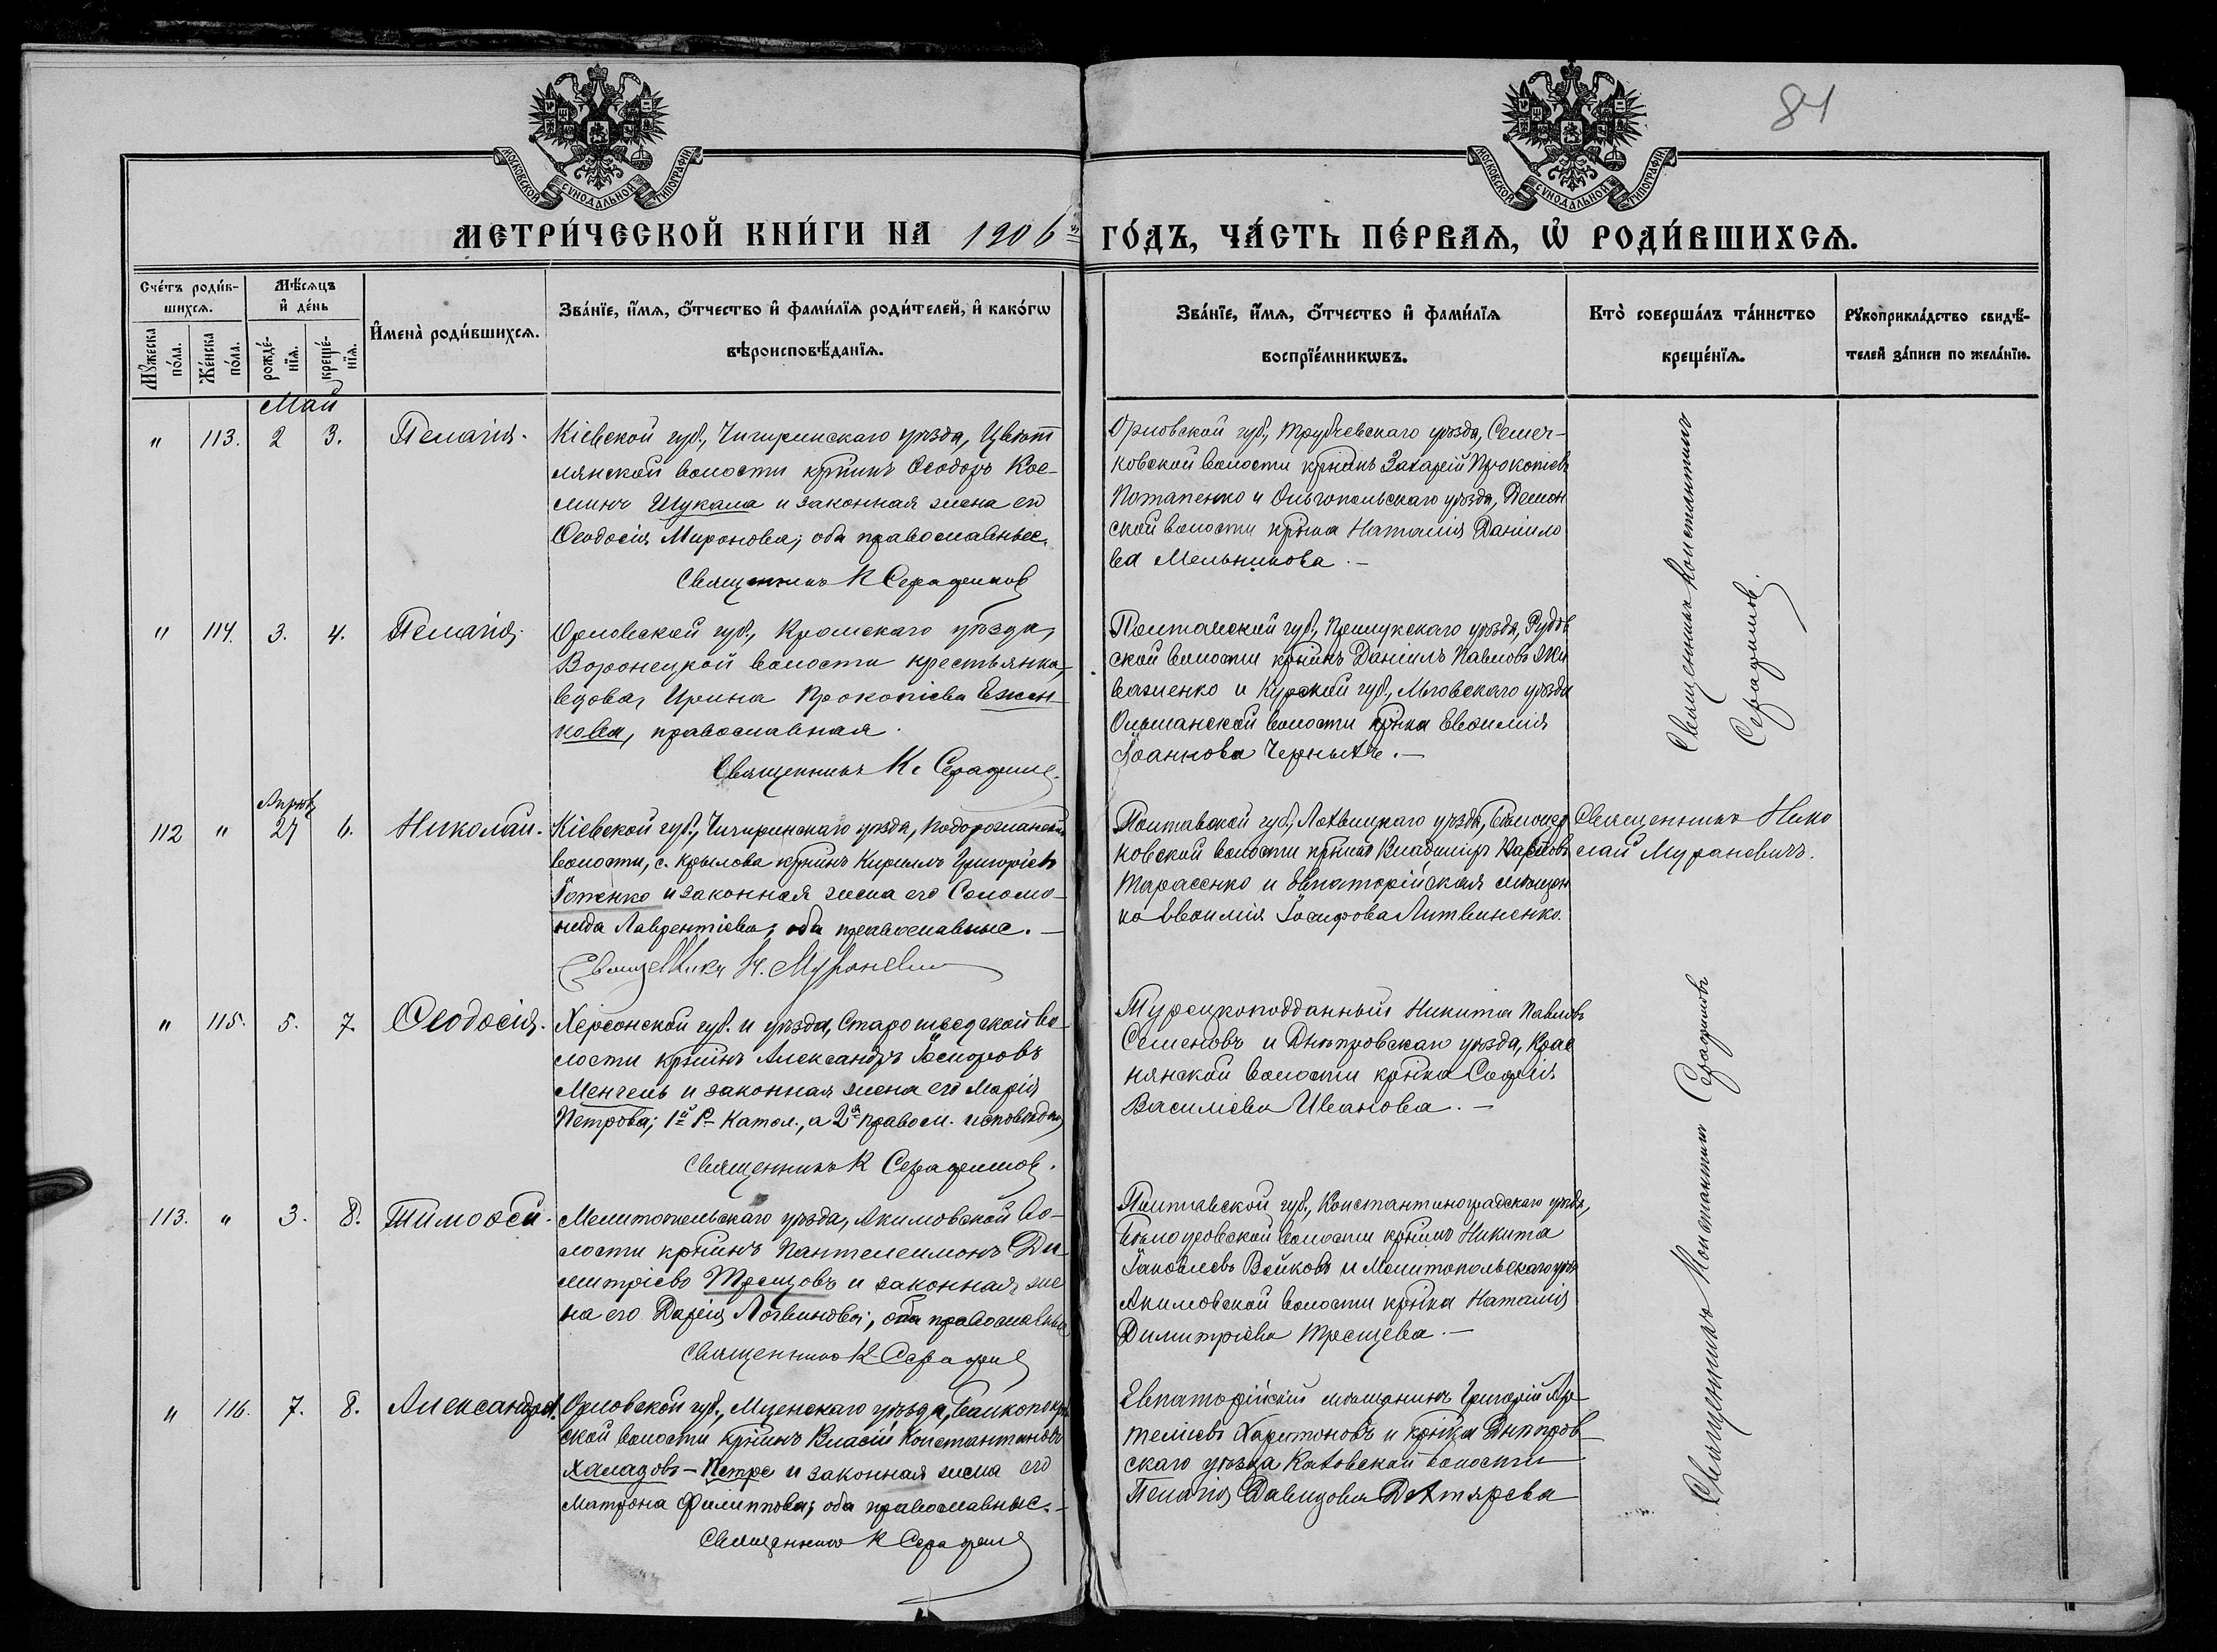 84
МОСКОВСКОЙ СѴНОДАЛЬНОЙ ТИПОГРАФІИ
МОСКОВСКОЙ СѴНОДАЛЬНОЙ ТИПОГРАФІИ
МЕТРИ́ЧЕСКОЙ КНИ́ГИ НА 1906 й ГО́ДЪ, ЧА́СТЬ ПЕ́РВАѦ, Ѡ҆ РОДИ́ВШИХСѦ.
Сче́тъ роди́в-
шихсѧ.
Мѹ́жеска по́ла.
Же́нска по́ла.
Мѣ́сѧцъ
и҆ де́нь
рожде́-
нїѧ.
креще́-
нїѧ.
И҆мена̀ роди́вшихсѧ.
Зва́нїе, и҆́мѧ, ѻ҆́тчество и҆ фами́лїѧ роди́телей, и҆ како́гѡ
вѣроисповѣ́данїѧ.
Зва́нїе, и҆́мѧ, ѻ҆́тчество и҆ фами́лїѧ
воспрїе́мникѡвъ.
Кто̀ соверша́лъ та́инство
креще́нїѧ.
Рѹкоприкла́дство свидѣ́-
телей за́писи по жела́нїю.
Май
" 113. 2 3. Пелагія.
Кіевской губ., Чигиринскаго уѣзда, Цвѣт
лянской волости кр̃нинъ Ѳеодоръ Кос-
минъ Шукала и законная жена его
Ѳеодосія Миронова; оба православные.
Священникъ К Серафимов
Орловской губ., Трубчевскаго уѣзда, Семеч-
ковской волости кр̃нинъ Захарій Прокопіевъ
Потапенко и Ольгопольскаго уѣзда, Демов
ской волости кр̃нка Наталія Даніило
ва Мельникова. -
Священникъ Константинъ
Серафимов.
" 114. 3. 4. Пелагія.
Орловской губ., Кромскаго уѣзда,
Воронецкой волости крестьянка,
вдова, Ирина Прокопіева Ежен-
кова, православная.
Священникъ К. Серафим
Полтавской губ., Прилукскаго уѣзда, Рудов
ской волости кр̃нинъ Даніилъ Павловъ Яки
важенко и Курской губ., Льговскаго уѣзда
Ольшанской волости кр̃нка Евѳимія
Іоаннова Черныхъ. -
Апрѣль
112 " 27 6. Николай.
Кіевской губ., Чигиринскаго уѣзда, Подорожанской
волости, с. Крылова кр̃нинъ Кириллъ Григорьевъ
Іотенко и законная жена его Соломо-
нида Лаврентіева; оба православные. -
Священникъ Н. Мураневич
Полтавской губ., Лохвицкаго уѣзда, Бѣлоцер
ковской волости кр̃нинъ Владиміръ Карповъ
Тарасенко и Евпаторійская мѣщан
ка Евѳимія Іосифова Литвиненко.
Священникъ Нико
лай Мураневичъ.
" 115. 5. 7. Ѳеодосія.
Херсонской губ. и уѣзда, Старошведской во-
лости кр̃нинъ Александръ Іосифовъ
Менгель и законная жена его Марія
Петрова; 1й Р- Катол., а 2я правосл. исповѣд.
Священникъ К Серафимов.
Турецкоподданный Никита Павловъ
Семеновъ и Днѣпровскаго уѣзда, Крас
нянской волости кр̃нка Софія
Василіева Иванова. -
Священникъ Константинъ Серафимовъ
113. " 3. 8. Тимоѳей.
Мелитопольскаго уѣзда, Акимовской во-
лости кр̃нинъ Пантелеимонъ Ди-
митріевъ Трещовъ и законная же
на его Дарія Логвинова; оба православные
Священникъ К Серафим
Полтавской губ., Константиноградскаго уѣзда,
Бѣлоуховской волости кр̃нинъ Никита
Іаковлевъ Войковъ и Мелитопольскаго уѣз
Акимовской волости кр̃нка Наталія
Димитріева Трещева. -
" 116. 7. 8. Александра.
Орловской губ., Мценскаго уѣзда,
ской волости кр̃нинъ Власій Константиновъ
Халадовъ-Петре и законная жена его
Матрона Филиппова; оба православные. -
Священникъ К Серафим
Евпаторійскій мѣщанинъ Григорій Ар-
теміевъ Харитоновъ и кр̃нка Днѣпров
скаго уѣзда Каховской волости
Пелагія Давидова Дехтярева